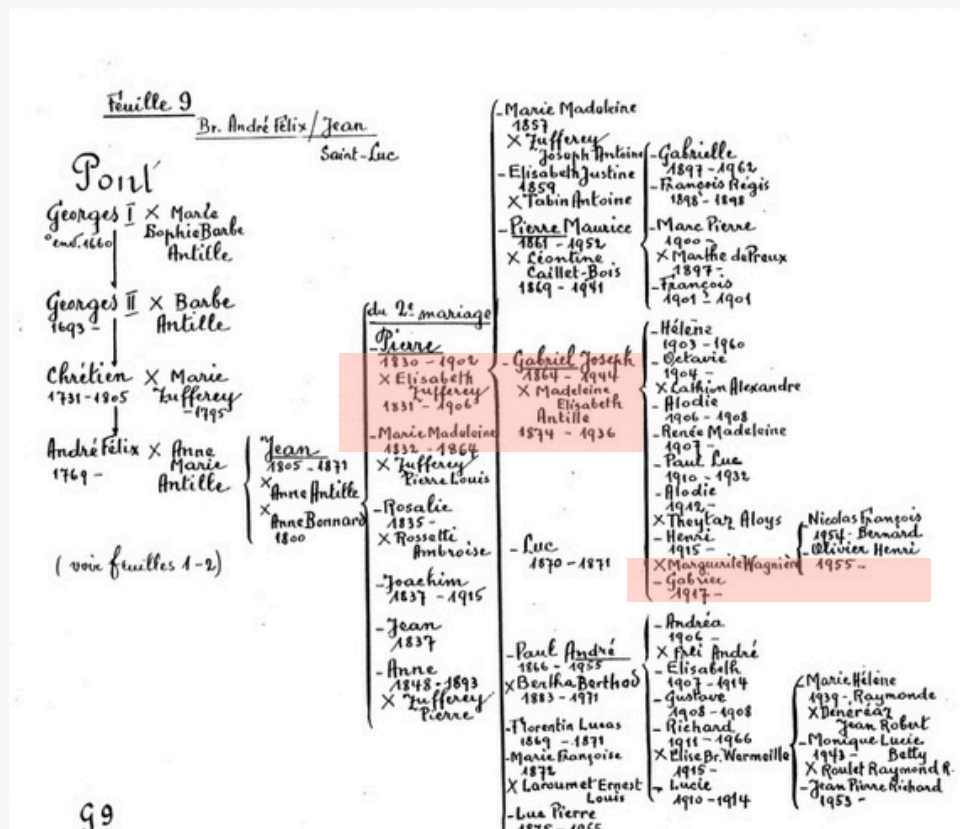 Feuille 9
Br. André Félix / Jean
Saint-Luc
Pont
Georges I X Marie
° env. 1660 Sophie Barbe
Antille
Georges II X Barbe
1693 - Antille
Chrétien X Marie
1731-1805 Zufferey
-1795
André Félix X Anne
1769 - Marie
Antille
(voir feuilles 1-2)
G9
Jean
1805 - 1871
X
Anne Antille
X
Anne Bonnard
1800
du 2e mariage
- Pierre
1830 - 1902
X Elisabeth
Zufferey
1831 - 1906
- Marie Madeleine
1832 - 1864
X Zufferey
Pierre Louis
- Rosalie
1835 -
X Rossetti
Ambroise
- Joachim
1837 - 1915
- Jean
1837
- Anne
1848 - 1893
X Zufferey
Pierre
- Marie Madeleine
1857
X Zufferey
Joseph Antoine
- Elisabeth Justine
1859
X Tabin Antoine
- Pierre Maurice
1861 - 1952
X Léontine
Caillet-Bois
1869 - 1941
- Gabriel Joseph
1864 - 1944
X Madeleine
Elisabeth
Antille
1874 - 1936
- Luc
1870 - 1871
- Paul André
1866 - 1955
X Bertha Berthod
1883 - 1971
- Florentin Lucas
1869 - 1871
- Marie Françoise
1872
X Laroumet Ernest
Louis
- Luc Pierre
- Gabrielle
1897 - 1962
- François Régis
1898 - 1898
- Marc Pierre
1900 -
X Marthe de Preux
1897 -
- François
1901 - 1901
- Hélène
1903 - 1960
- Octavie
1904 -
X Lathion Alexandre
- Alodie
1906 - 1908
- Renée Madeleine
1907 -
- Paul Luc
1910 - 1932
- Alodie
1912 -
X Theytaz Aloys
- Henri
1915 -
X Marguerite Wagnière
- Gabriel
1917 -
- Andréa
1906 -
X Frei André
- Elisabeth
1907 - 1914
- Gustave
1908 - 1908
- Richard
1911 - 1966
X Elise Br. Wermeille
1915 -
- Lucie
1910 - 1914
- Nicolas François
1954 - Bernard
- Olivier Henri
1955 -
- Marie Hélène
1939 - Raymonde
X Dénéréaz
Jean Robert
- Monique Lucie
1943 - Betty
X Roulet Raymond R.
- Jean Pierre Richard
1953 -